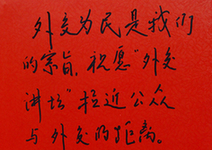 外交为民是我们
的宗旨，祝愿“外交
讲坛”拉近公众
与外交的距离。